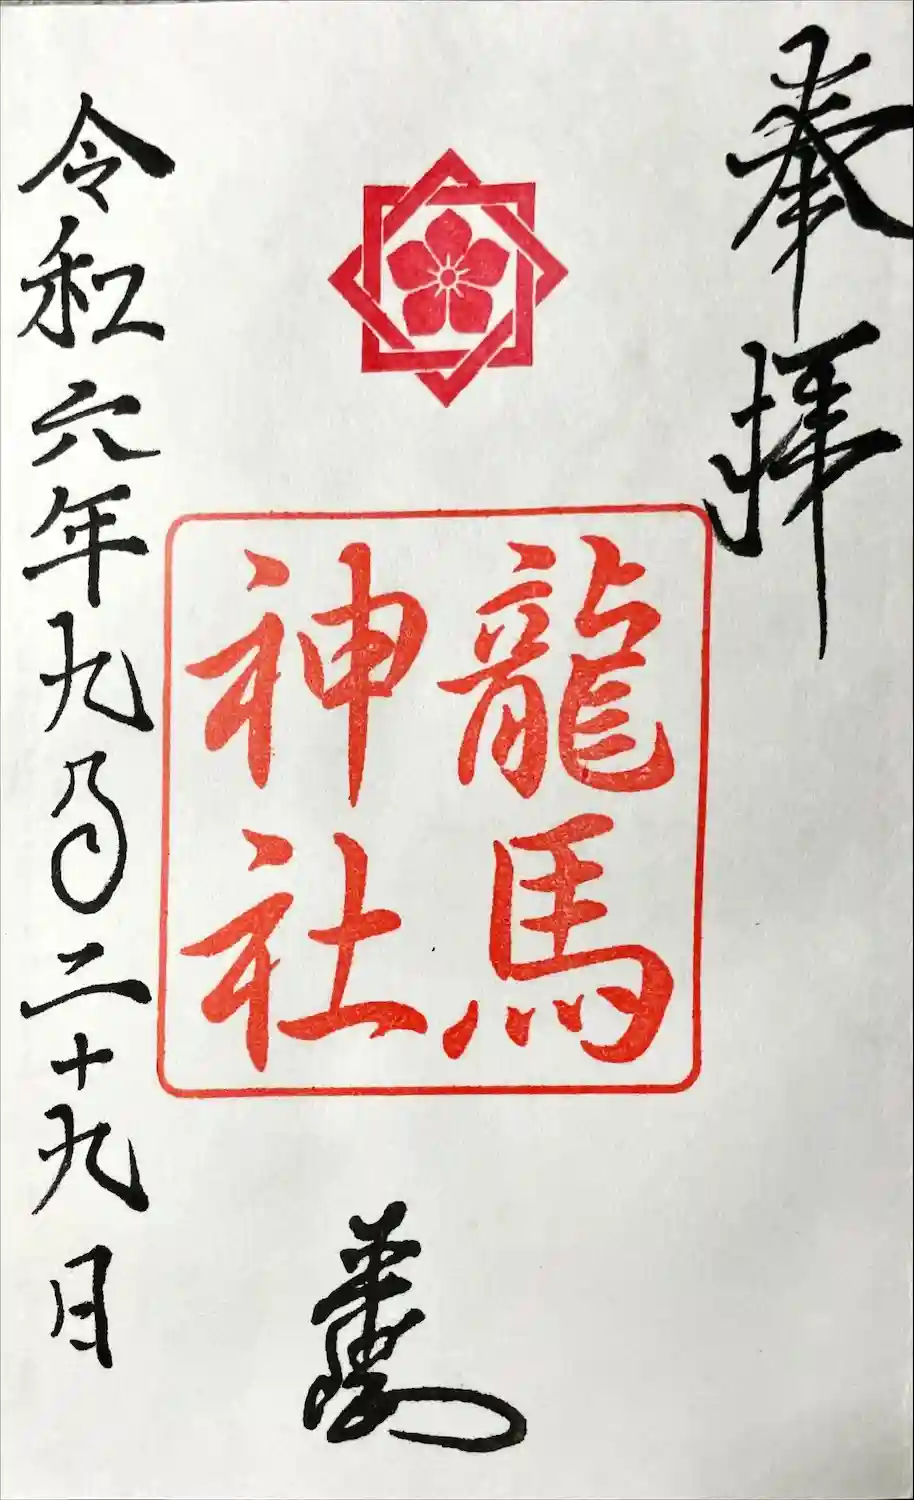 奉拝
龍馬
神社
令和六年九月二十九日